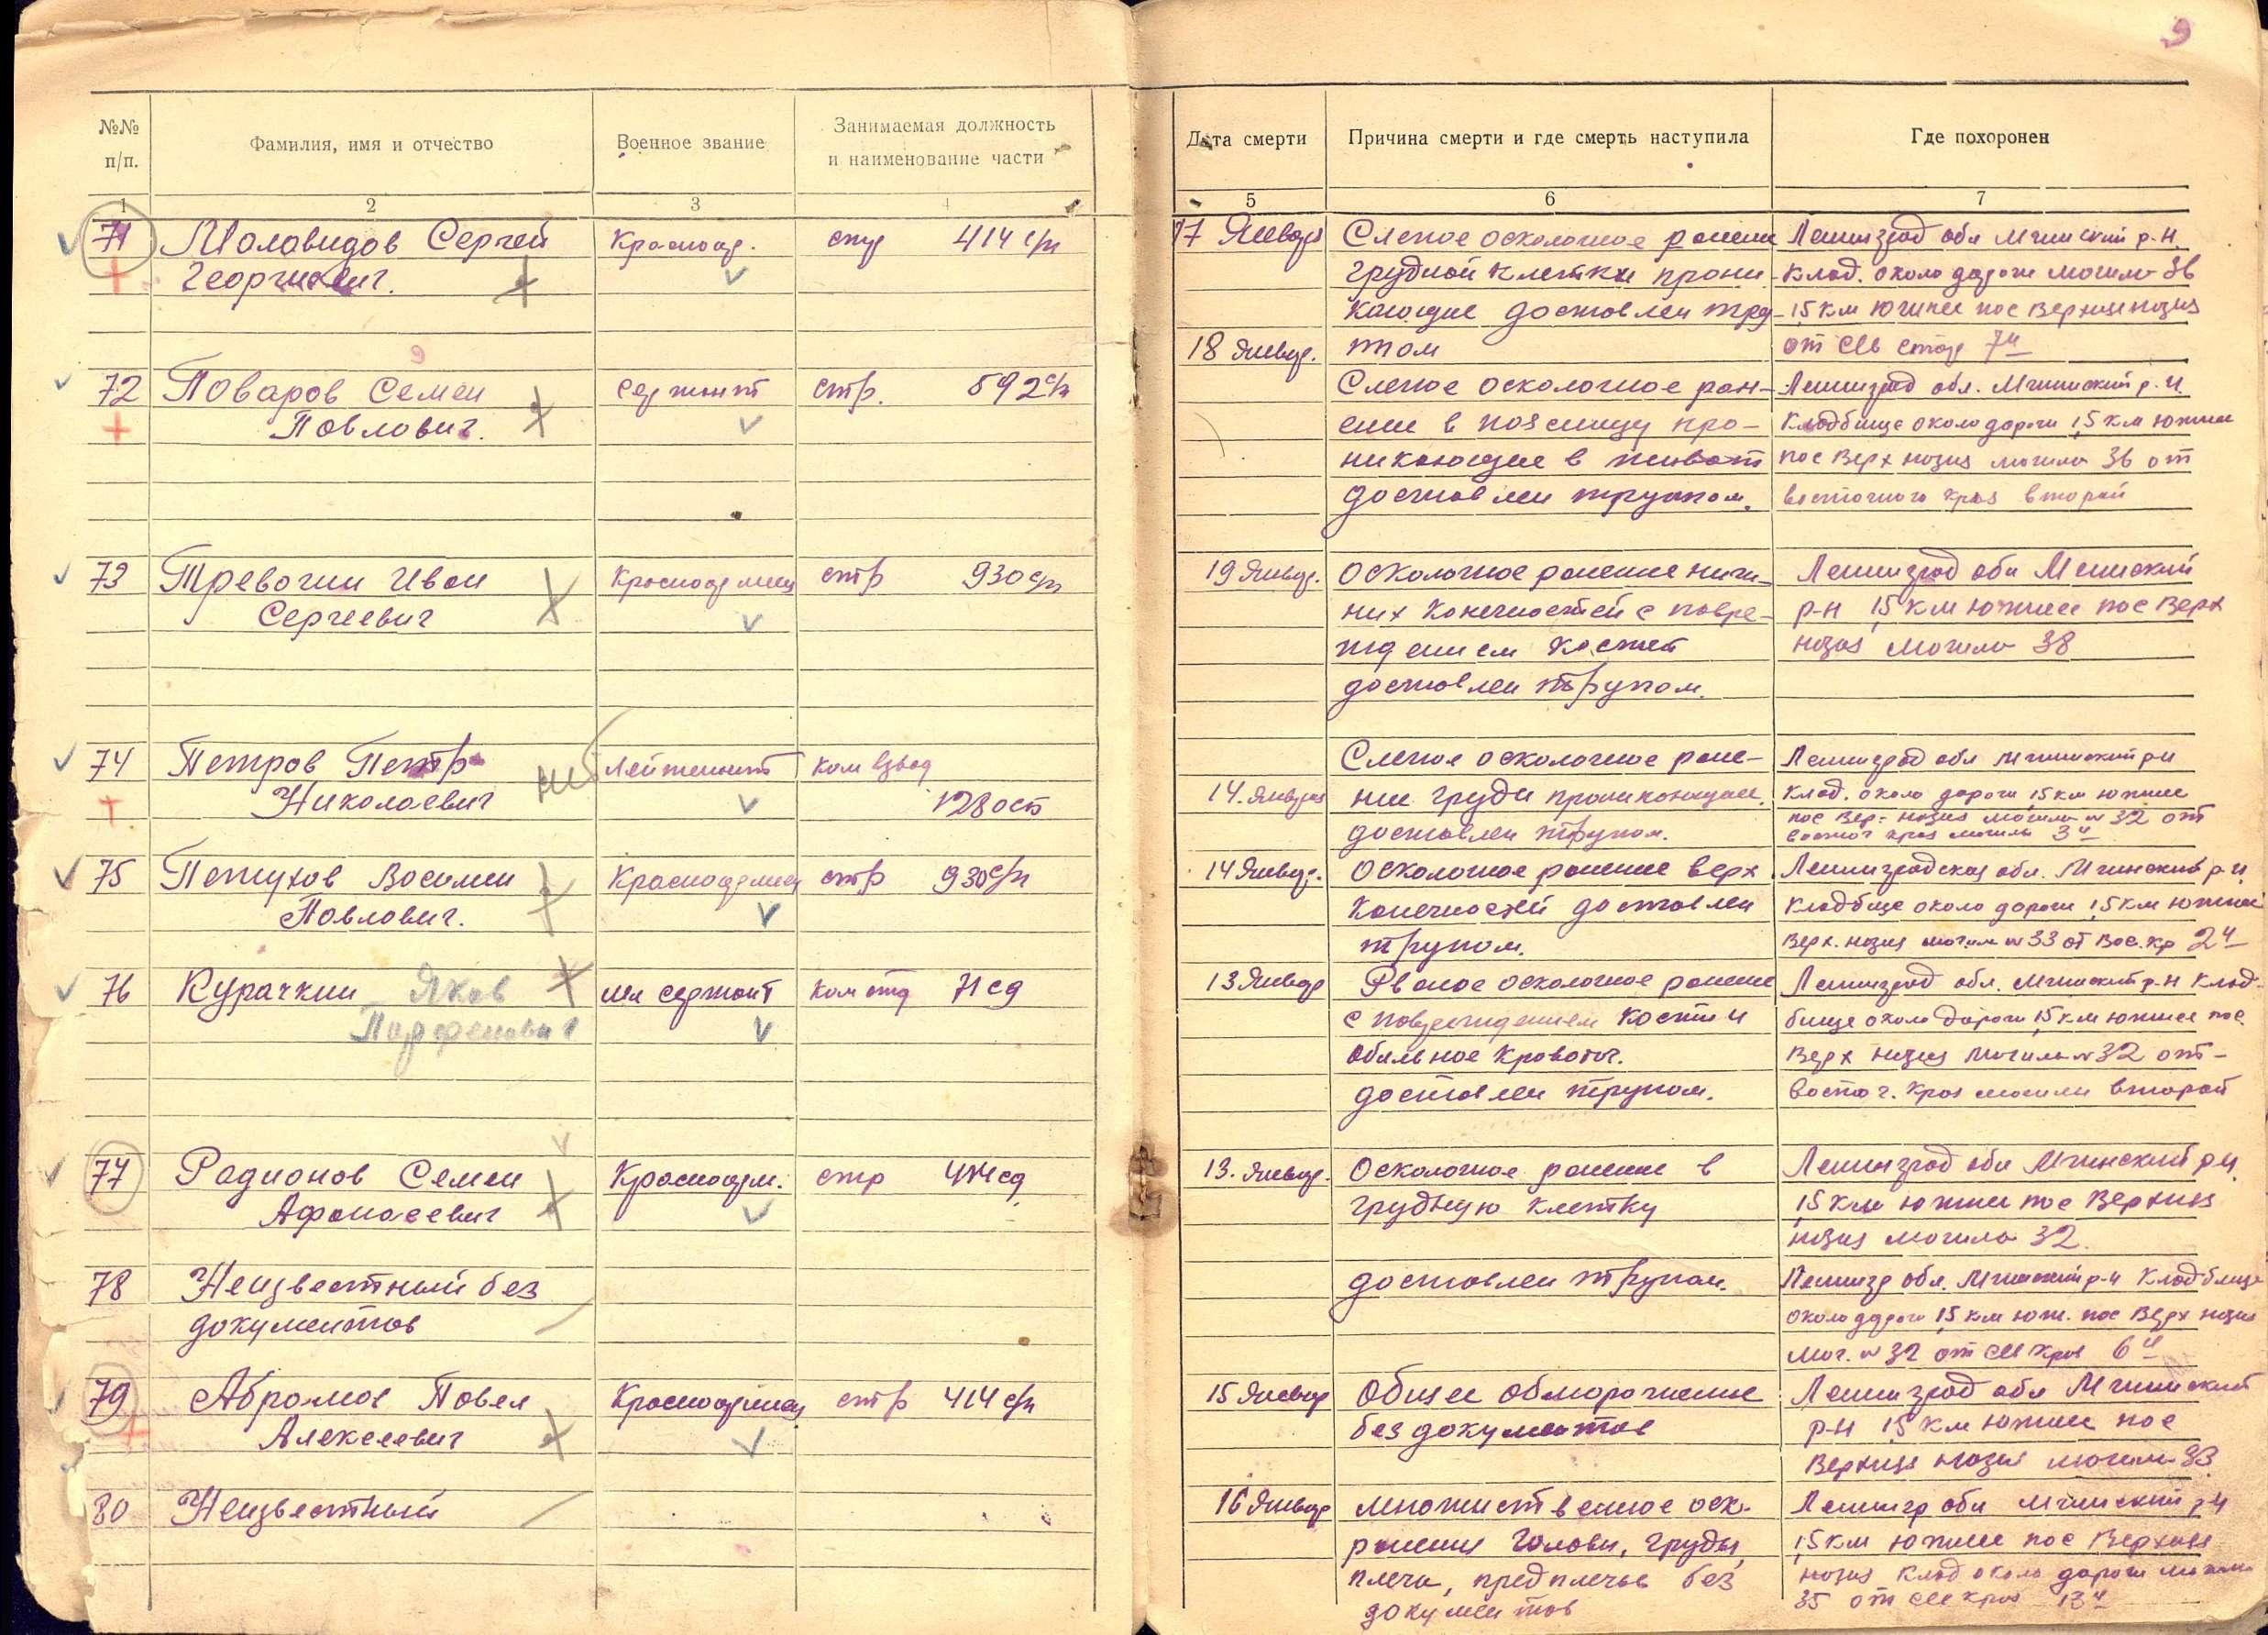 9
№№ п/п.
Фамилия, имя и отчество
Военное звание
Занимаемая должность
и наименование части
1 2 3 4
71 Моловидов Сергей Красноар. стр 414 с/п
Георгиевич.
72 Поваров Семен сержант стр. 592 с/п
Павлович.
73 Тревогин Иван Красноармеец стр 930 с/п
Сергеевич
74 Петров Петр Лейтенант ком взвод
Николаевич 128 осб
75 Петухов Василии Красноармеец стр 930 с/п
Павлович.
76 Курачкин Яков мл сержант ком отд 71 сд
Парфенович
77 Радионов Семен Красноарм. стр 414 сд
Афонасевич
78 Неизвестный без
документов
79 Абрамов Павел Красноармеец стр 414 с/п
Алексеевич
80 Неизвестный
Дата смерти
Причина смерти и где смерть наступила
Где похоронен
5 6 7
17 Январ Слепое осколочное ранение Ленинград обл Мгинский р-н.
грудной клетки прони- клад. около дороги могила 36
кающие доставлен тру- 1,5 км южнее пос Верхние назия
18 Январ. пом от СВ стор 7й
Слепое осколочное ран- Ленинград обл. Мгинский р-н
ение в поясницу про- Кладбище около дороги 1,5 км южнее
никающие в живот пос Верх назия могила 36 от
доставлен трупом. восточного края второй
19 Январ. Осколочное ранение ниж- Ленинград обл Мгинский
них конечностей с повре- р-н 1,5 км южнее пос Верх
ждением костей назия могила 38
доставлен трупом.
Слепое осколочное ране- Ленинград обл Мгинский р-н
14. Января ние груди проникающее. клад. около дороги 1,5 км южнее
доставлен трупом. пос Вер- назия могила № 32 от
восточ края могилы 3й
14 Январ. Осколочное ранение верх Ленинградская обл. Мгинский р-н.
конечностей доставлен кладбище около дороги 1,5 км южнее
трупом. Верх. назия могил № 33 от Вос. кр 2й
13 Январ Рваное осколочное ранение Ленинград обл. Мгинский р-н Клад-
с повреждением кости и бище около дороги 1,5 км южнее пос.
обильное кровоточ. Верх назия могила № 32 от-
доставлен трупом. восточ. края могили второй
13. Январ. Осколочное ранение в Ленинград обл Мгинский р-н.
грудную клетку 1,5 км южнее пос Верхняя
назия могила 32.
доставлен трупом. Ленингр обл. Мгинский р-н Кладбище
около дороги 1,5 км юж. пос Верх назия
мог. № 32 от СВ края 6й
15 Январ Общее обморожение Ленинград обл Мгинский
без документов р-н 1,5 км южнее пос
Верхняя назия могила 33
16 Январ множиственное оск. Ленингр обл Мгинский р-н
ранения головы, груды, 1,5 км южнее пос Верхняя
плеча, предплечье без назия клад около дороги могила
документов 35 от СВ края 13й